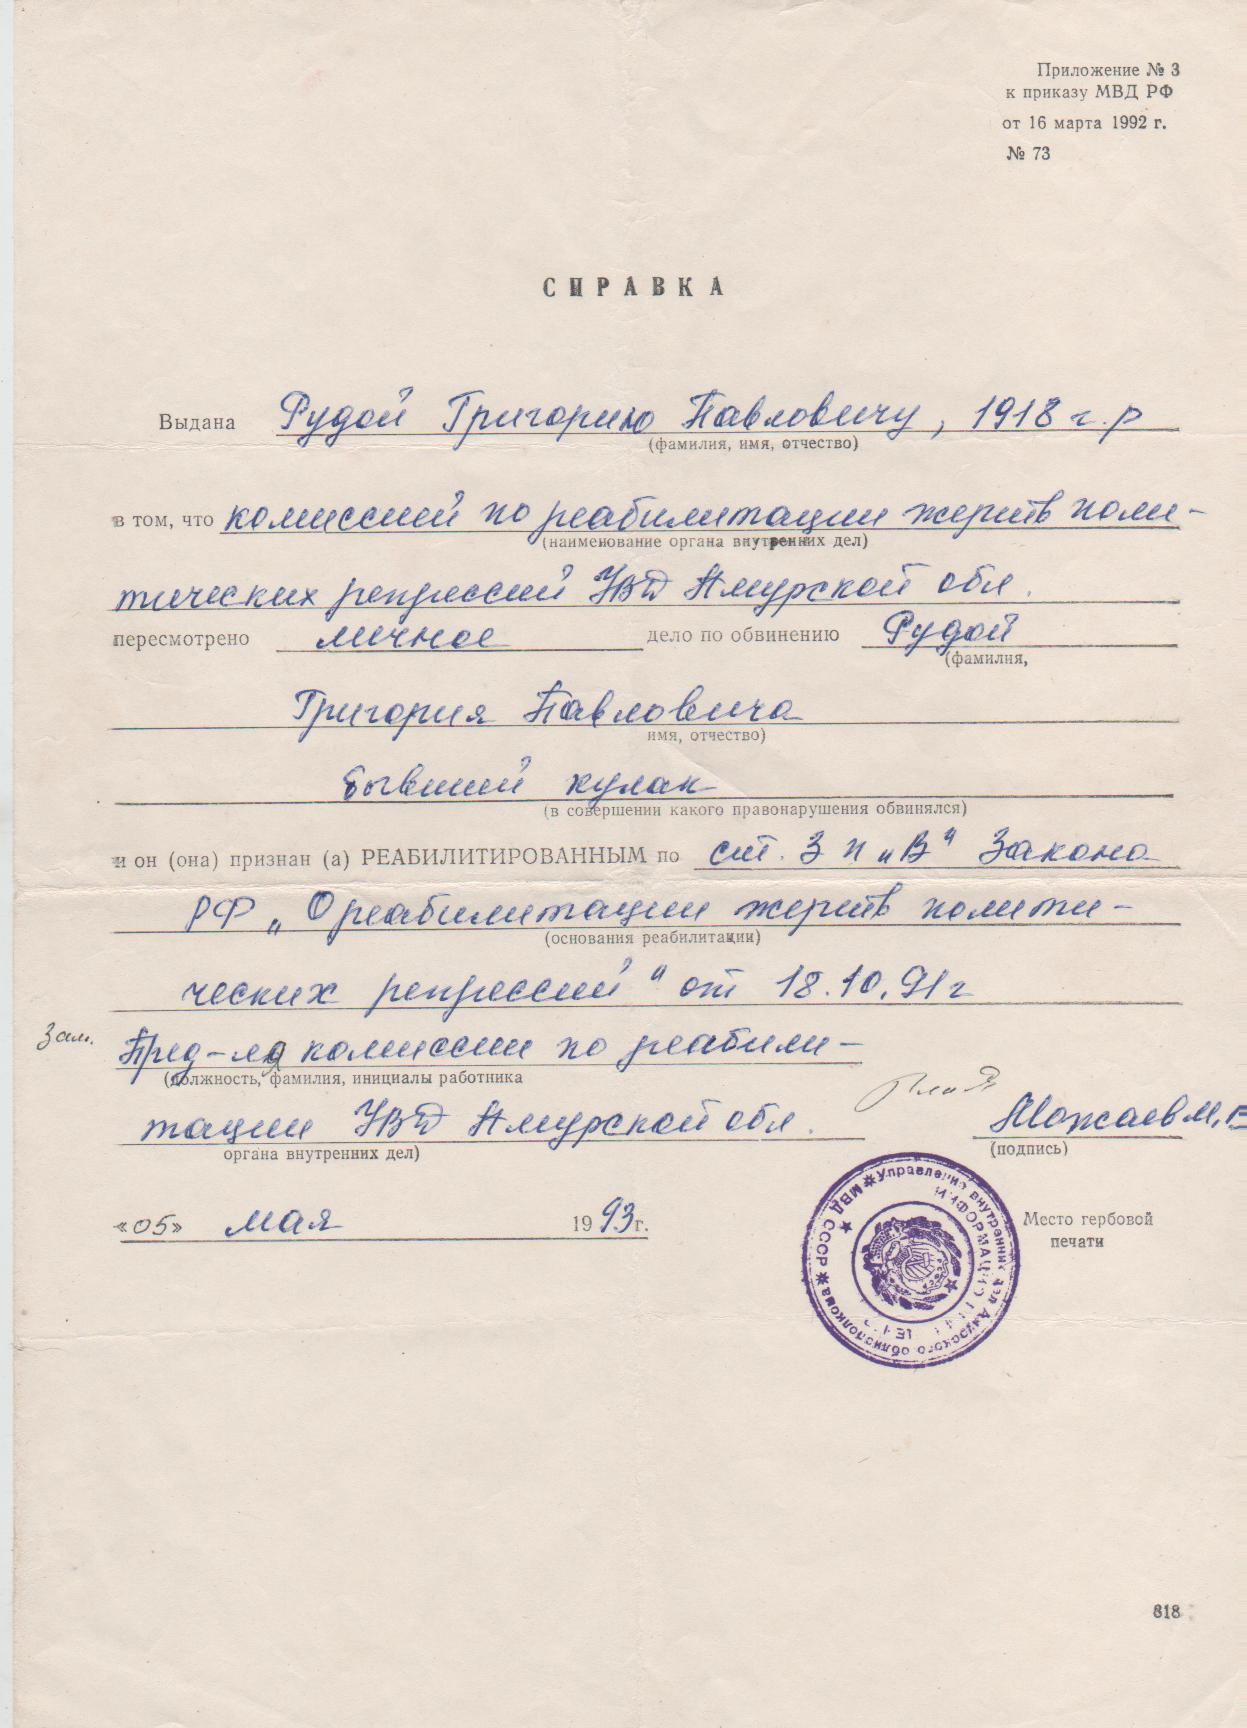 Приложение № 3
к приказу МВД РФ
от 16 марта 1992 г.
№ 73
СПРАВКА
Выдана Рудой Григорию Павловичу, 1918 г.р
(фамилия, имя, отчество)
в том, что комиссией по реабилитации жертв поли-
(наименование органа внутренних дел)
тических репрессий УВД Амурской обл.
пересмотрено личное дело по обвинению Рудой
(фамилия,
Григория Павловича
имя, отчество)
бывший кулак
(в совершении какого правонарушения обвинялся)
и он (она) признан (а) РЕАБИЛИТИРОВАННЫМ по ст. 3 п „В“ Закона
РФ „О реабилитации жертв полити-
(основания реабилитации)
ческих репрессий“ от 18.10.91г
Зам. Пред-ля комиссии по реабили-
(должность, фамилия, инициалы работника
тации УВД Амурской обл. Можаев М.В
органа внутренних дел) (подпись)
«05» мая 1993г.
Место гербовой
печати
МВД СССР * Управление внутренних дел Амурского облисполкома *
818